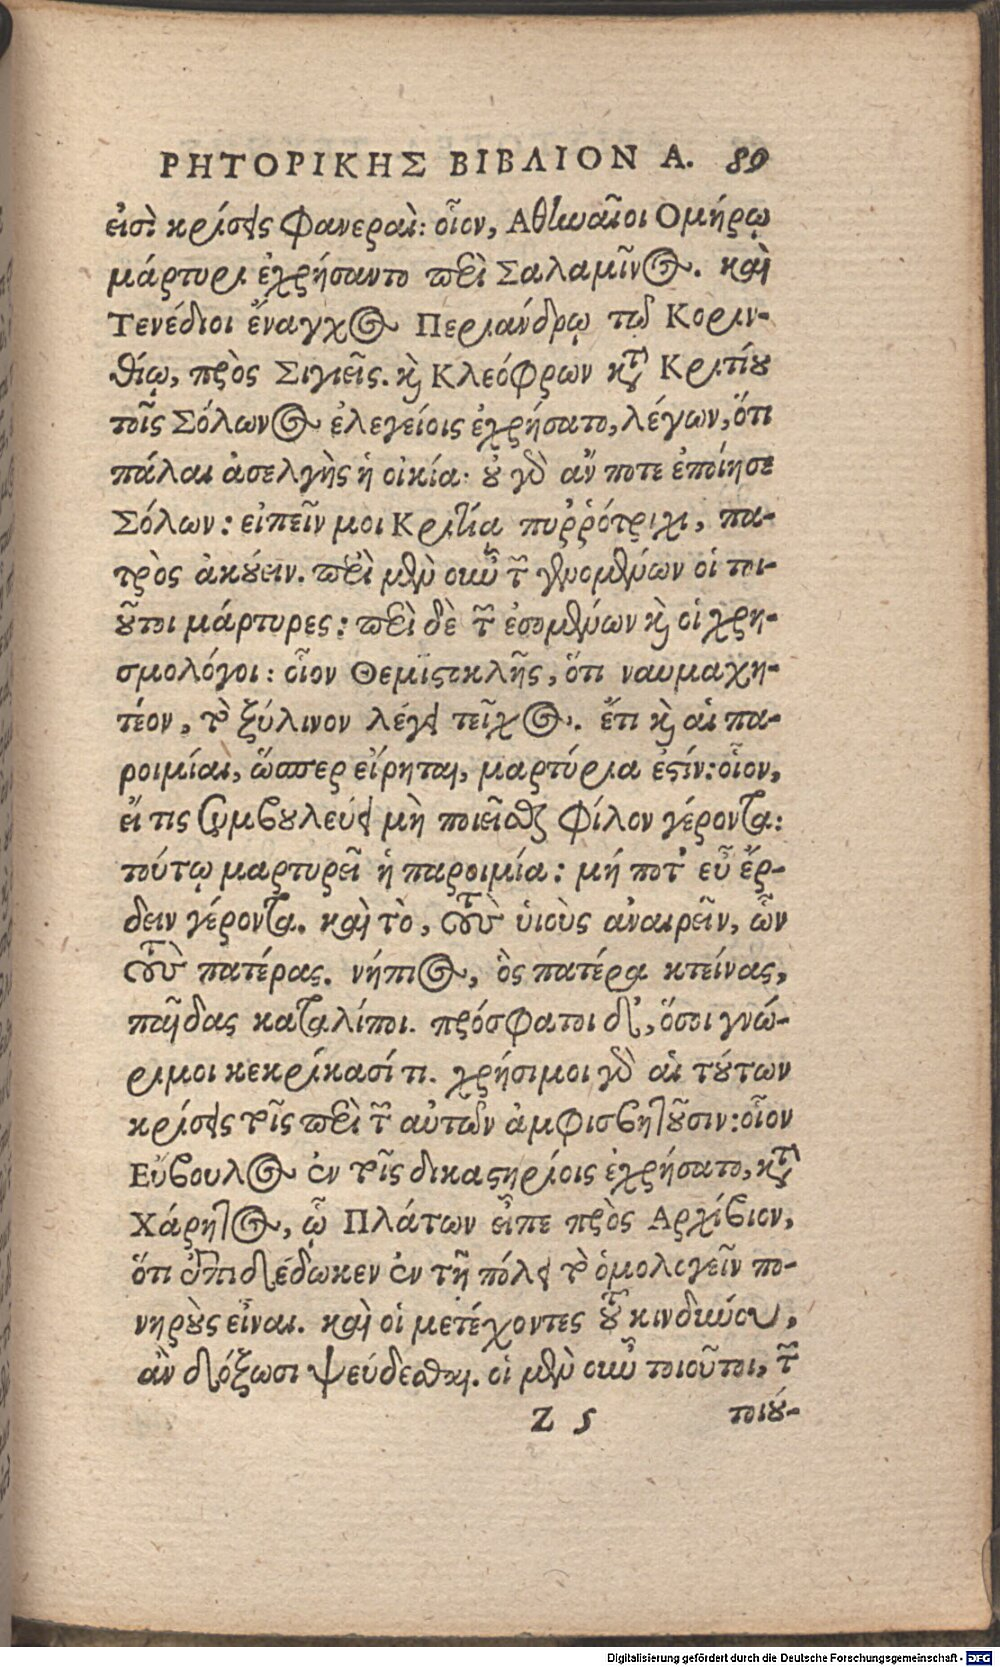 ΡΗΤΟΡΙΚΗΣ ΒΙΒΛΙΟΝ Α. 89
εἰσὶ κρίσεις φανεραὶ: οἷον, Αθηναῖοι Ομήρῳ
μάρτυρι ἐχρήσαντο περὶ Σαλαμῖνος. καὶ
Τενέδιοι ἔναγχος Περιάνδρῳ τῷ Κοριν-
θίῳ, πρὸς Σιγιεῖς. καὶ Κλεόφρων κατὰ Κριτίου
τοῖς Σόλωνος ἐλεγείοις ἐχρήσατο, λέγων, ὅτι
πάλαι ἀσελγὴς ἡ οἰκία· οὐ γὰρ ἄν ποτε ἐποίησε
Σόλων: εἰπεῖν μοι Κριτίᾳ πυῤῥότριχι, πα-
τρὸς ἀκούειν. περὶ μὲν οὖν τῶν γενομένων οἱ τοι-
οῦτοι μάρτυρες: περὶ δὲ τῶν ἐσομένων καὶ οἱ χρη-
σμολόγοι: οἷον Θεμιστκλῆς, ὅτι ναυμαχη-
τέον, τὸ ξύλινον λέγει τεῖχος. ἔτι καὶ αἱ πα-
ροιμίαι, ὥσπερ εἴρηται, μαρτύρια ἐστίν: οἷον,
εἴ τις συμβουλεύει μὴ ποιεῖσθαι φίλον γέροντα:
τούτῳ μαρτυρεῖ ἡ παροιμία: μή ποτ' εὖ ἔρ-
δειν γέροντα. καὶ τὸ, τοὺς ὑιοὺς ἀναιρεῖν, ὧν
τοὺς πατέρας. νήπιος, ὃς πατέρα κτείνας,
παῖδας καταλίποι. πρόσφατοι δ', ὅσοι γνώ-
ριμοι κεκρίκασί τι. χρήσιμοι γὰρ αἱ τούτων
κρίσεις τοῖς περὶ τῶν αὐτῶν ἀμφισβητοῦσιν: οἷον
Εὔβουλος ἐν τοῖς δικαστηρίοις ἐχρήσατο, κατὰ
Χάρητος, ᾧ Πλάτων εἶπε πρὸς Αρχίβιον,
ὅτι ἐπιδέδωκεν ἐν τῇ πόλει τὸ ὁμολογεῖν πο-
νηροὺς εἶναι. καὶ οἱ μετέχοντες τοῦ κινδύνου,
ἂν δόξωσι ψεύδεσθαι. οἱ μὲν οὖν τοιοῦτοι, τῶν
Z 5 τοιού-
Digitalisierung gefördert durch die Deutsche Forschungsgemeinschaft - DFG